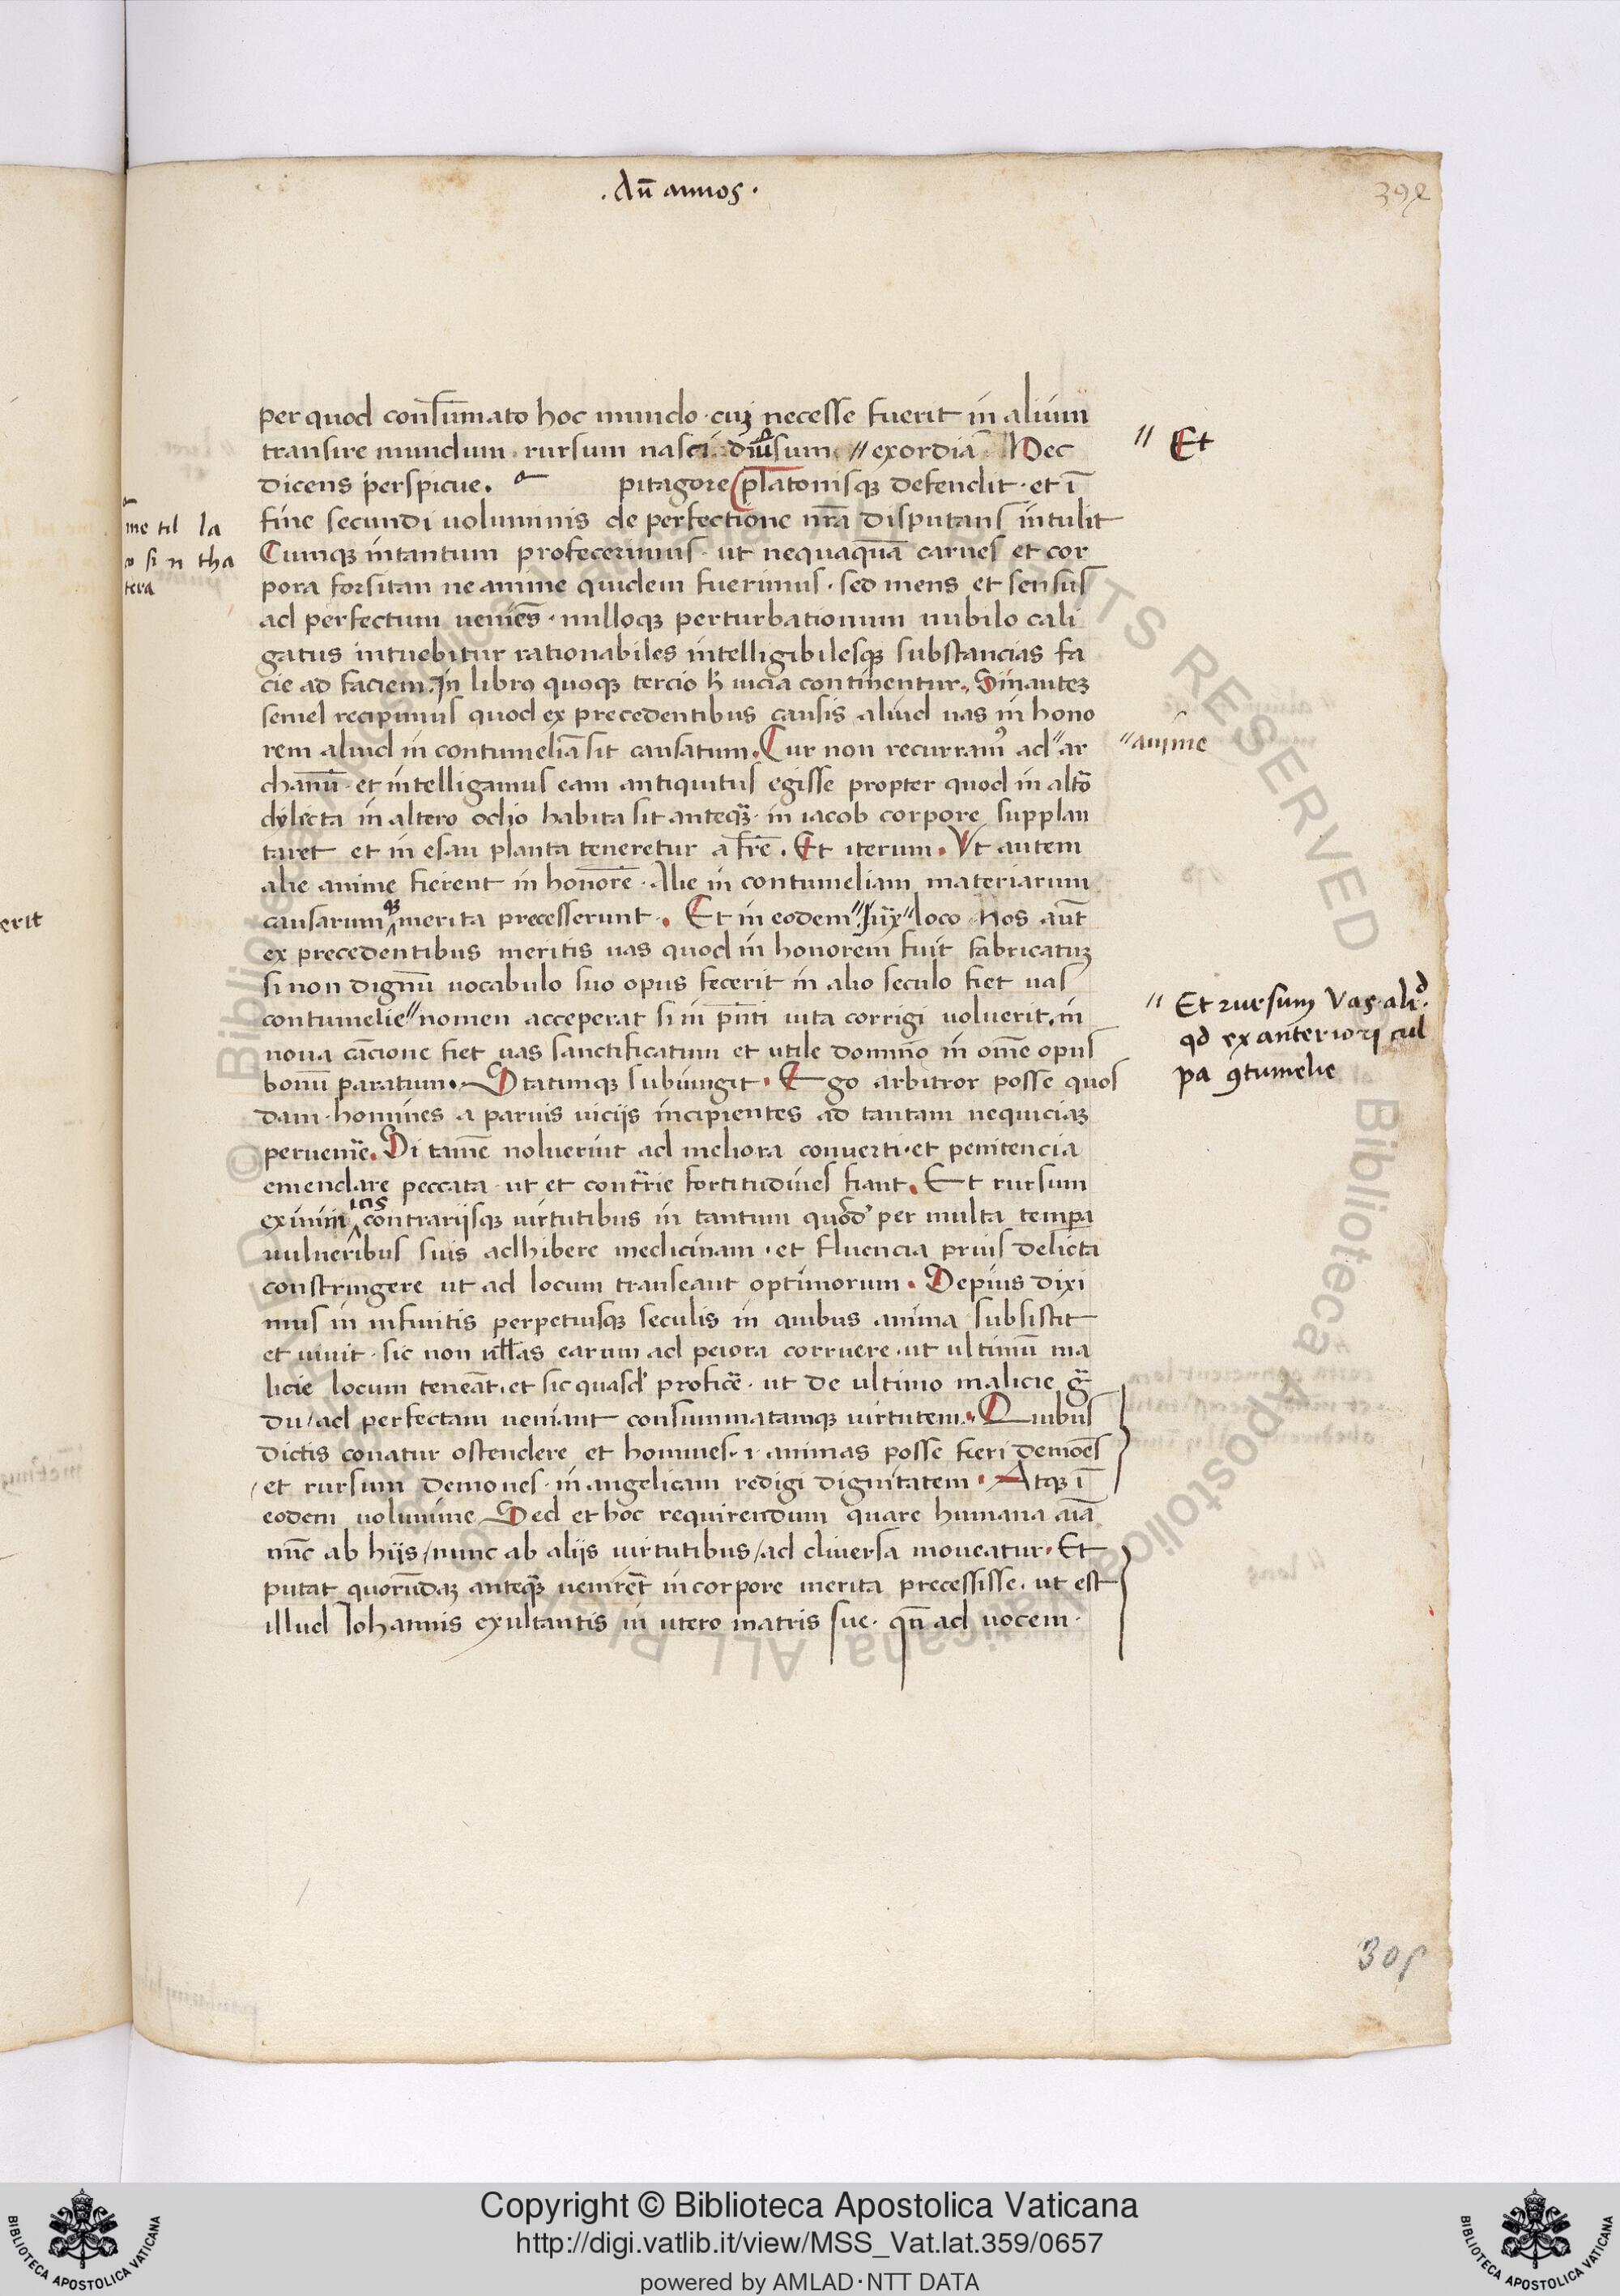 .Añ annos.
392
per quod consūmato hoc mundo · cuꝫ necesse fuerit in alium
transire mundum · rursum nasci diuersum // exordiā Nec
dicens perspicue.
pitagore platonisqꝫ defendit · et ī
fine secundi uoluminis de perfectione nr̄a disputans intulit
Cumqꝫ intantum profecerimus · ut nequaquā carnes et cor
pora forsitan ne anime quidem fuerimus · sed mens et sensus
ad perfectum ueniēs · nulloqꝫ perturbationum nubilo cali
gatus intuebitur rationabiles intelligibilesqꝫ substancias fa
cie ad faciem. In libro quoqꝫ tercio h̄ uicia continentur. Sin auteꝫ
semel recipimus quod ex precedentibus causis aliud uas in hono
rem aliud in contumeliā sit causatum. Cur non recurramꝰ ad // ar
chanū · et intelligamus eam antiquitus egisse propter quod in altō
dilecta in altero odio habita sit anteqꝫ · in iacob corpore supplan
taret et in esau planta teneretur a fr̄e. Et iterum. Vt autem
alie anime fierent in honorē · Alie in contumeliam materiarum
causarum qꝫ merita precesserunt. Et in eodem // // loco Nos aut̄
ex precedentibus meritis uas quod in honorem fuit fabricatuꝫ
si non dignū uocabulo suo opus fecerit in alio seculo fiet uas
contumelie // nomen acceperat si in pn̄ti uita corrigi uoluerit. in
noua cācione fiet uas sanctificatum et utile domino in om̄e opus
bonū paratum. Statimqꝫ subiungit. Ego arbitror posse quos
dam · homines a paruis uiciis incipientes ad tantam nequiciaꝫ
peruenire. Si tamē noluerint ad meliora conuerti · et penitencia
emendare peccata · ut et contrarie fortitudines fiant. Et rursum
ex inimicis contrariisqꝫ uirtutibus in tantum quosd̄ per multa tempora
uulneribus suis adhibere medicinam · et fluencia prius delicta
constringere ut ad locum transeant optimorum. Sepius dixi
mus in infinitis perpetuisqꝫ seculis in quibus anima subsistit
et uiuit · sic non ull̄as earum ad peiora corruere · ut ultimū ma
licie locum teneāt. et sic quasd̄ proficē · ut de ultimo malicie grā
du / ad perfectam ueniant consummatamqꝫ uirtutem. Quibus
dictis conatur ostendere et homines · i · animas posse fieri demoēs
et rursum demones · in angelicam redigi dignitatem. Atqꝫ ī
eodem uolumine. Sed et hoc requirendum quare humana aīa
nūc ab hiis / nunc ab aliis uirtutibus / ad diuersa moueatur. Et
putat quorūdaꝫ anteqꝫ uenirēt in corpore merita precessisse. ut est
illud Iohannis exultantis in utero matris sue · qn̄ ad uocem ·
// Et
// anime
// Et rursum Vas aliud
qd ex anteriori cul
pa ꝯtumelie
me til la
si n tha
tera
erit
Copyright © Biblioteca Apostolica Vaticana
http://digi.vatlib.it/view/MSS_Vat.lat.359/0657
powered by AMLAD·NTT DATA
BIBLIOTECA APOSTOLICA VATICANA
BIBLIOTECA APOSTOLICA VATICANA